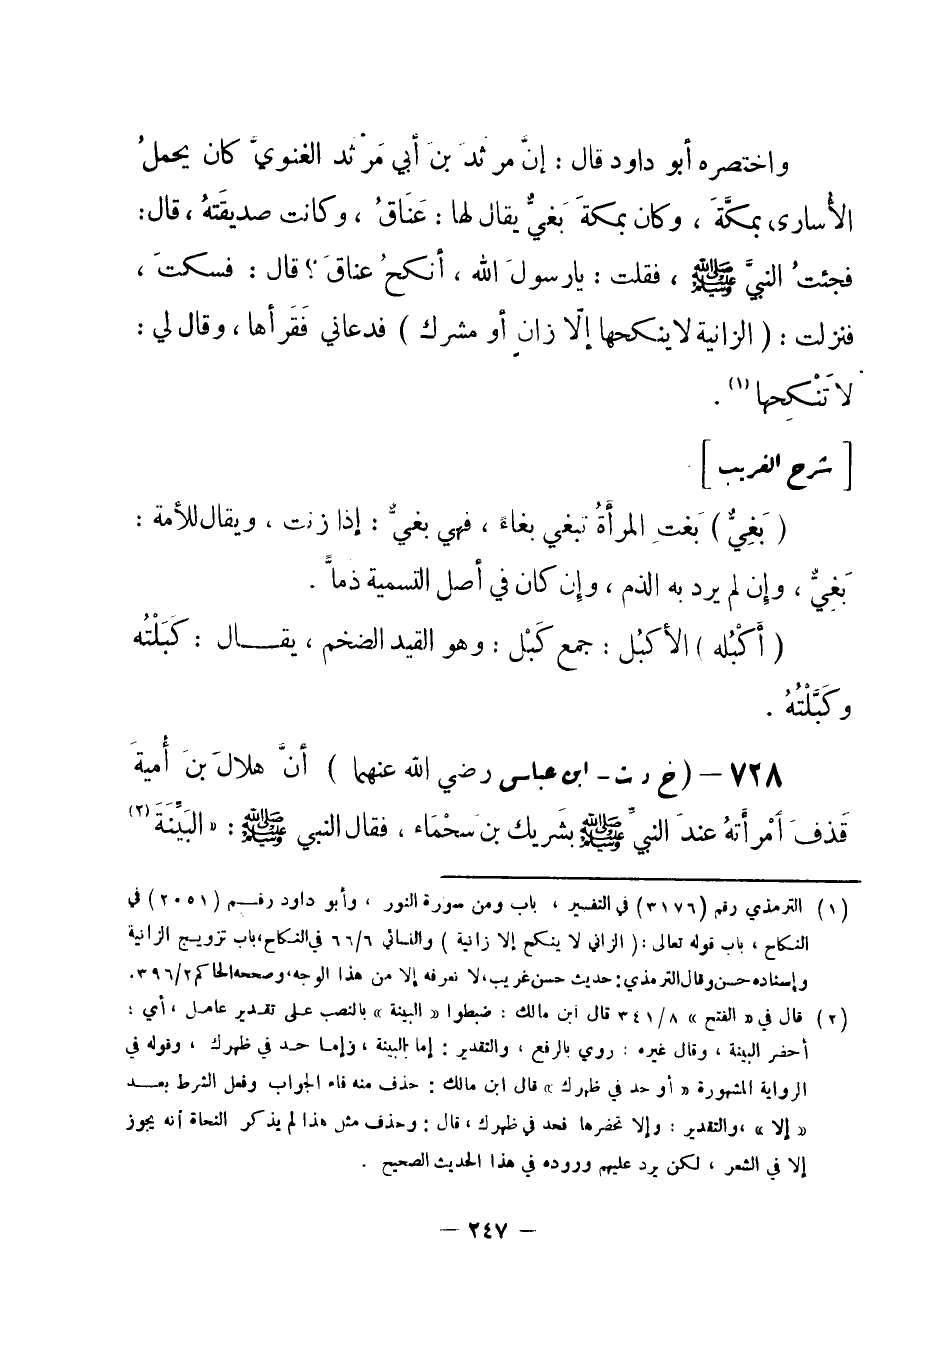 واختصره أبو داود قال : إنَّ مرثدَ بنَ أبي مَرْثد الغنويَّ كان يحملُ
الأُسارى بمكَّةَ ، وكان بمكةَ بَغيٌّ يقال لها : عَنَاقُ ، وكانت صديقَتهُ ، قال :
فجئتُ النبيَّ ﷺ ، فقلت : يارسولَ الله ، أنكحُ عناقَ ؟ قال : فسكتَ ،
فنزلت : ( الزانية لاينكحها إلّا زانٍ أو مشرك ) فدعاني فَقَرأها ، وقال لي :
لا تَنْكِحها (١) .
[ شرح الغريب ]
( بَغِيٌّ ) بَغتِ المرأَةُ تبغي بغاءً ، فهي بغيٌّ : إذا زنت ، ويقال للأمة :
بَغِيٌّ ، وإن لم يرد به الذم ، وإن كان في أصل التسمية ذماً .
( أَكْبُله ) الأكبُل : جمع كَبْل : وهو القيد الضخم ، يقــــال : كَبَلْتُه
وكَبَّلْتُهُ .
٧٢٨ – ( خ د ت - ابن عباس رضي الله عنهما ) أنَّ هلالَ بنَ أُميةَ
قَذفَ اَمْرأَتهُ عندَ النبيِّ ﷺ بشَريك بن سَحْمَاء ، فقال النبي ﷺ : « البَيِّنَةَ (٢)
(١) الترمذي رقم (٣١٧٦) في التفسير ، باب ومن سورة النور ، وأبو داود رقـم (٢٠٥١) في
النكاح ، باب قوله تعالى : ( الزاني لا ينكح إلا زانية ) والنسائي ٦٦/٦ في النكاح ، باب تزويج الزانية
وإسناده حسن وقال الترمذي : حديث حسن غريب ، لا نعرفه إلا من هذا الوجه ، وصححه الحاكم ٣٩٦/٢ .
(٢) قال في « الفتح » ٣٤١/٨ قال ابن مالك : ضبطوا « البينة » بالنصب على تقدير عامل ، أي :
أحضر البينة ، وقال غيره : روي بالرفع ، والتقدير : إما البينة ، وإما حد في ظهرك ، وقوله في
الرواية المشهورة « أو حد في ظهرك » قال ابن مالك : حذف منه فاء الجواب وفعل الشرط بعــد
« إلا » ، والتقدير : وإلا تحضرها فحد في ظهرك ، قال : وحذف مثل هذا لم يذكر النحاة أنه يجوز
إلا في الشعر ، لكن يرد عليهم وروده في هذا الحديث الصحيح .
– ٢٤٧ –